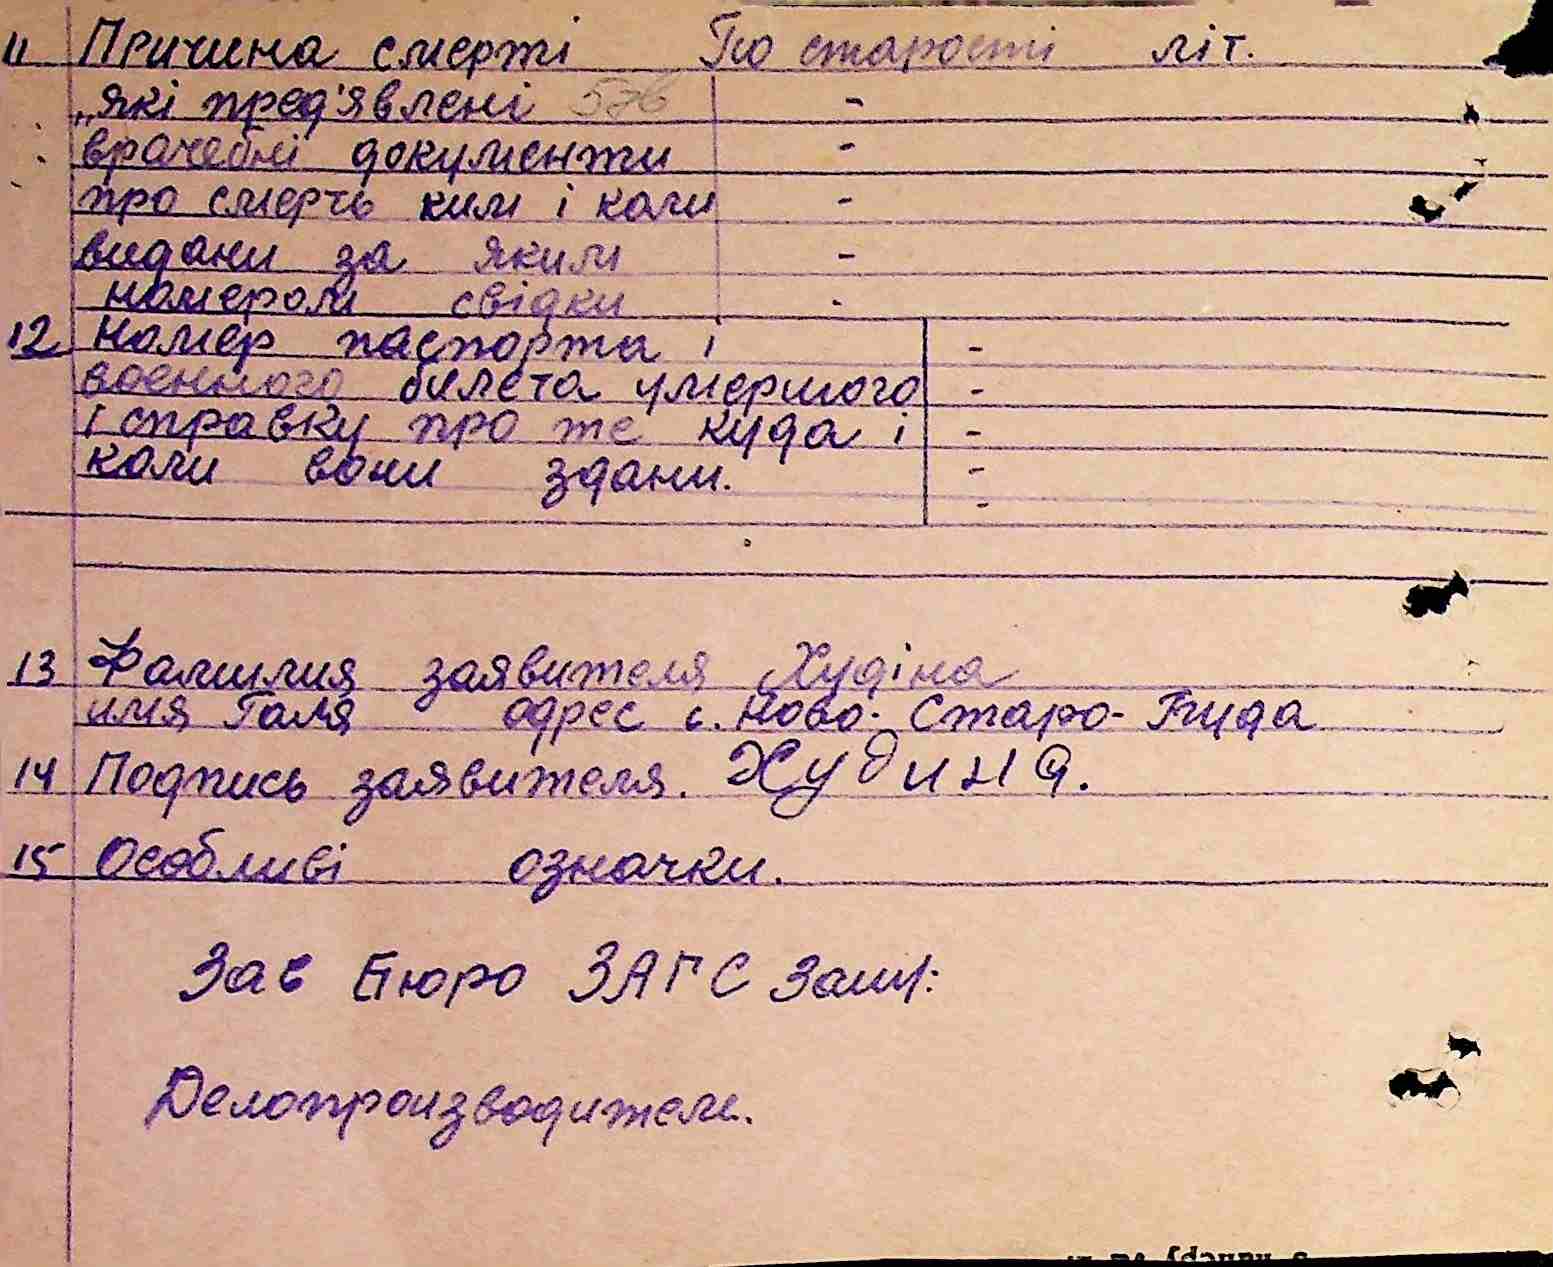 11 Причина смерті По старості літ.
„які пред'явлені 576 -
врачебні документи -
про смерть ким і коли -
видани за яким -
номером свідки -
12 номер паспорта і -
военного билета умершого -
і справку про те куда і -
коли вони здани. -
-
13 Фамилия заявителя Худіна
имя Галя адрес с. Ново-Старо-Гуда
14 Подпись заявителя. Худина.
15 Особливі означки.
Зав Бюро ЗАГС
Делопроизводитель.